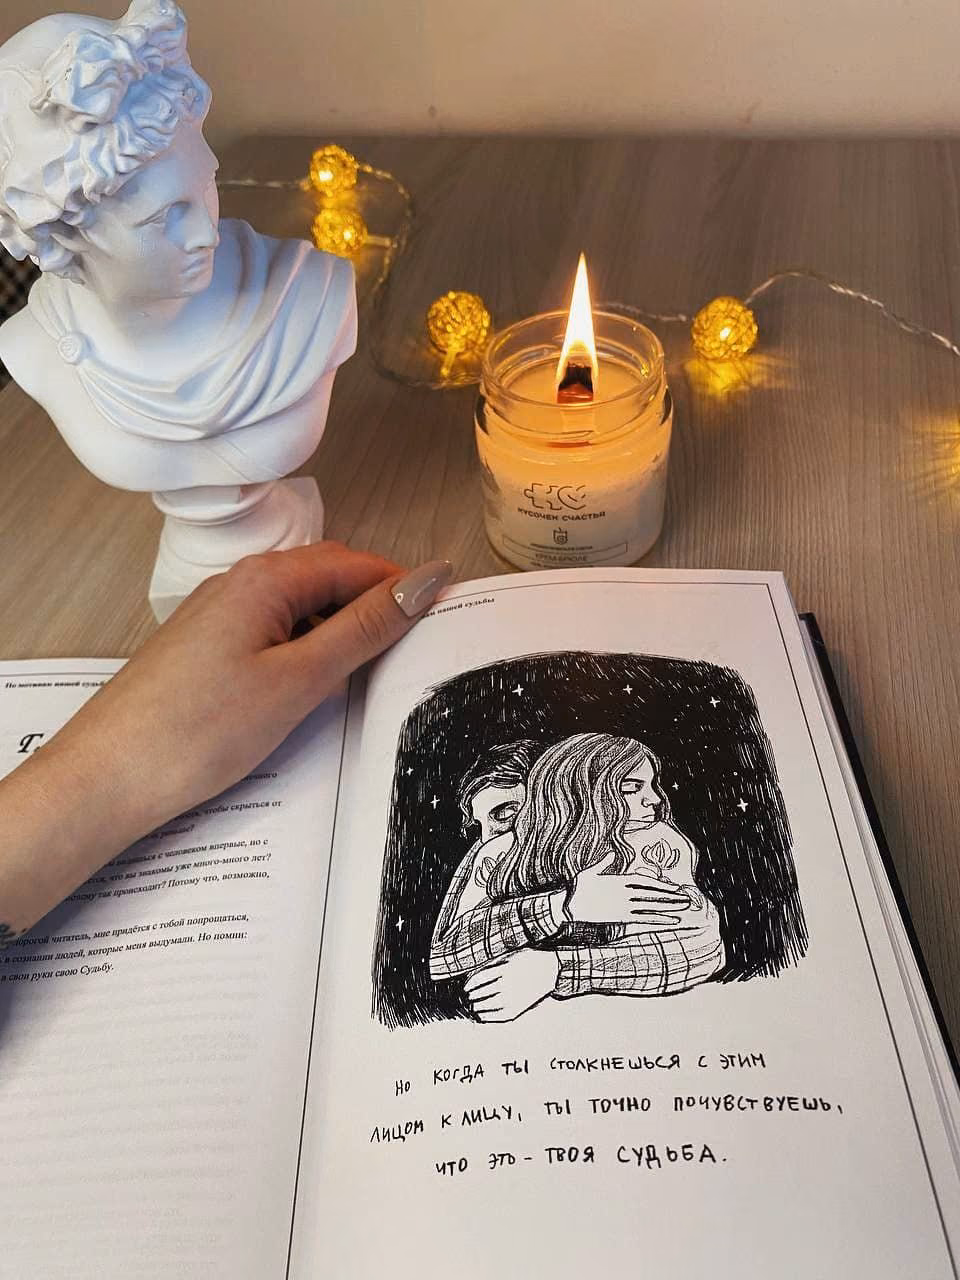 КУСОЧЕК СЧАСТЬЯ
КРЕМ-БРЮЛЕ
нашей судьбы
По мотивам нашей судьбы
чтобы скрыться от
раньше?
с человеком впервые, но с
что вы знакомы уже много-много лет?
так происходит? Потому что, возможно,
дорогой читатель, мне придётся с тобой попрощаться,
в сознании людей, которые меня выдумали. Но помни:
в свои руки свою Судьбу.
НО КОГДА ТЫ СТОЛКНЕШЬСЯ С ЭТИМ
ЛИЦОМ К ЛИЦУ, ТЫ ТОЧНО ПОЧУВСТВУЕШЬ,
ЧТО ЭТО - ТВОЯ СУДЬБА.